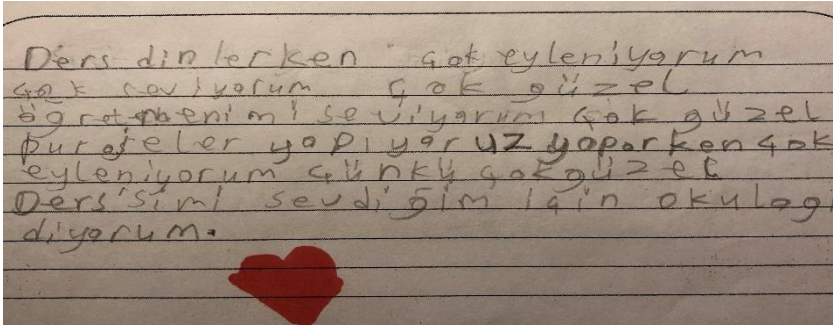 Ders dinlerken çok eyleniyorum
çok seviyorum çok güzel
ögretmenimi seviyorum çok güzel
purojeler yapıyoruz yaparken çok
eyleniyorum çünkü çok güzel
Ders'simi sevdiğim için okulagi
diyorum.